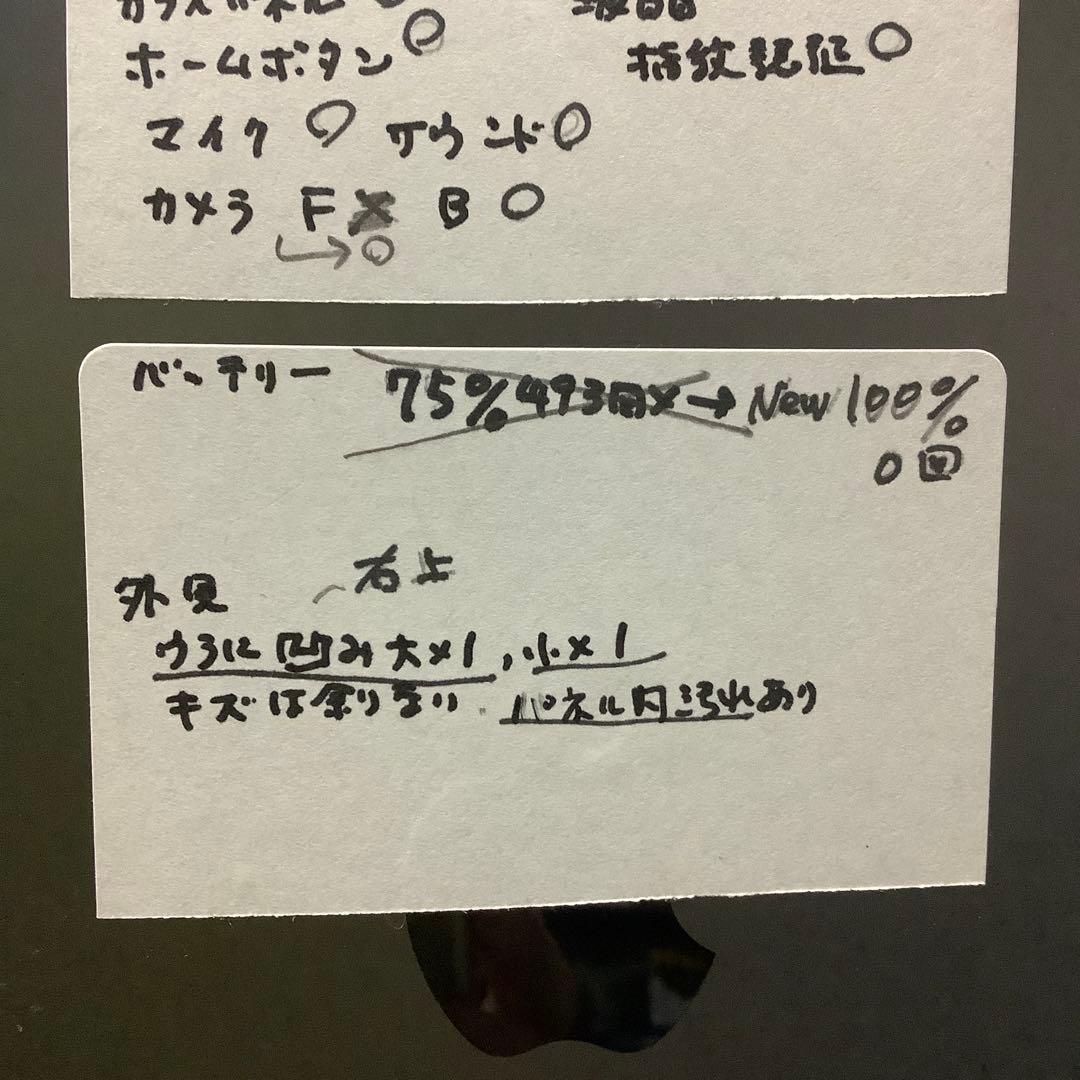 ガラスパネル 液晶
ホームボタン○ 指紋認証○
マイク ○ サウンド○
カメラ F× B ○
→○
バッテリー 75% 493回× → New 100%
0回
右上
外見
ウラに凹み大×1,小×1
キズは余りない パネル内汚れあり